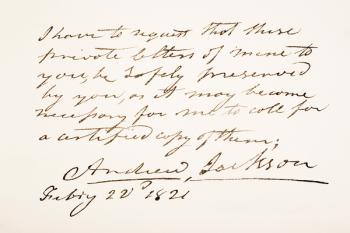 I have to request that these
private letters of mine to
you, be safely preserved
by you, as it may become
necessary for me to call for
a certified copy of them;
Andrew Jackson
Febry 22d 1821